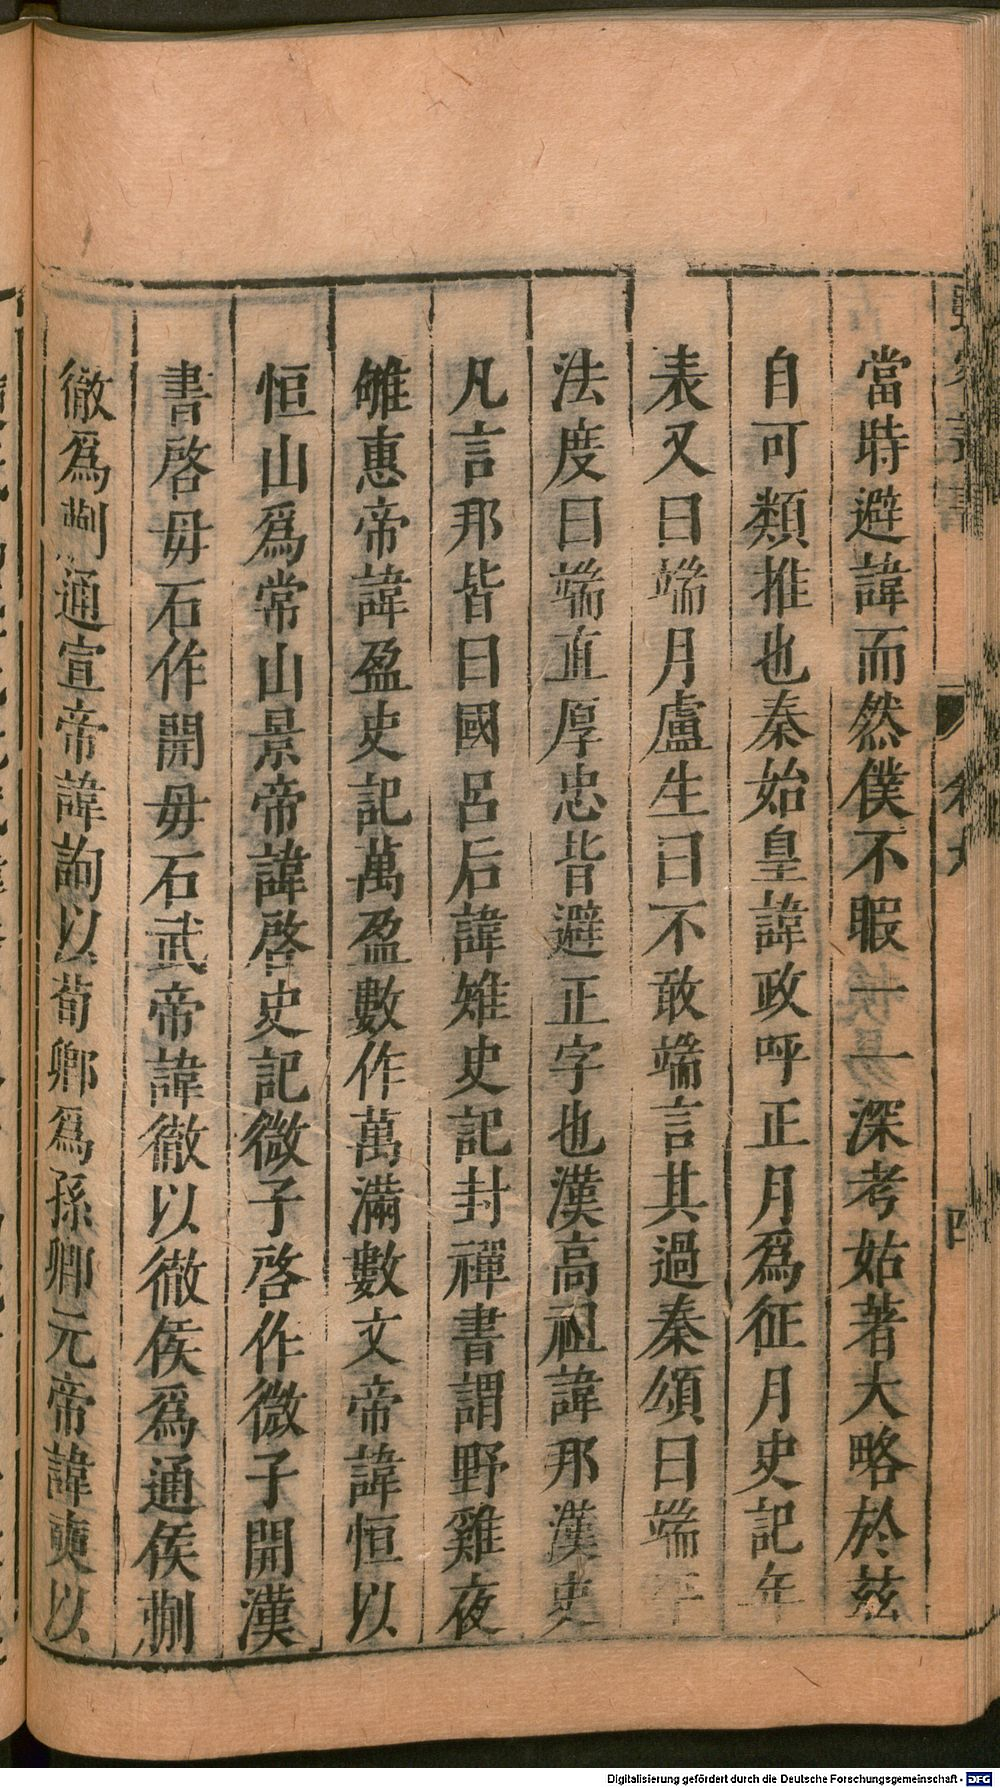 當時避諱而然僕不暇一一深考姑著大略於茲
自可類推也秦始皇諱政呼正月爲征月史記年
表又曰端月盧生曰不敢端言其過秦頌曰端平
法度曰端直厚忠皆避正字也漢高祖諱邦漢史
凡言邦皆曰國呂后諱雉史記封禪書謂野雞夜
雊惠帝諱盈史記萬盈數作萬滿數文帝諱恒以
恒山爲常山景帝諱啓史記微子啓作微子開漢
書啓毋石作開毋石武帝諱徹以徹侯爲通侯蒯
徹爲蒯通宣帝諱詢以荀卿爲孫卿元帝諱奭以
卷九
四
Digitalisierung gefördert durch die Deutsche Forschungsgemeinschaft - DFG